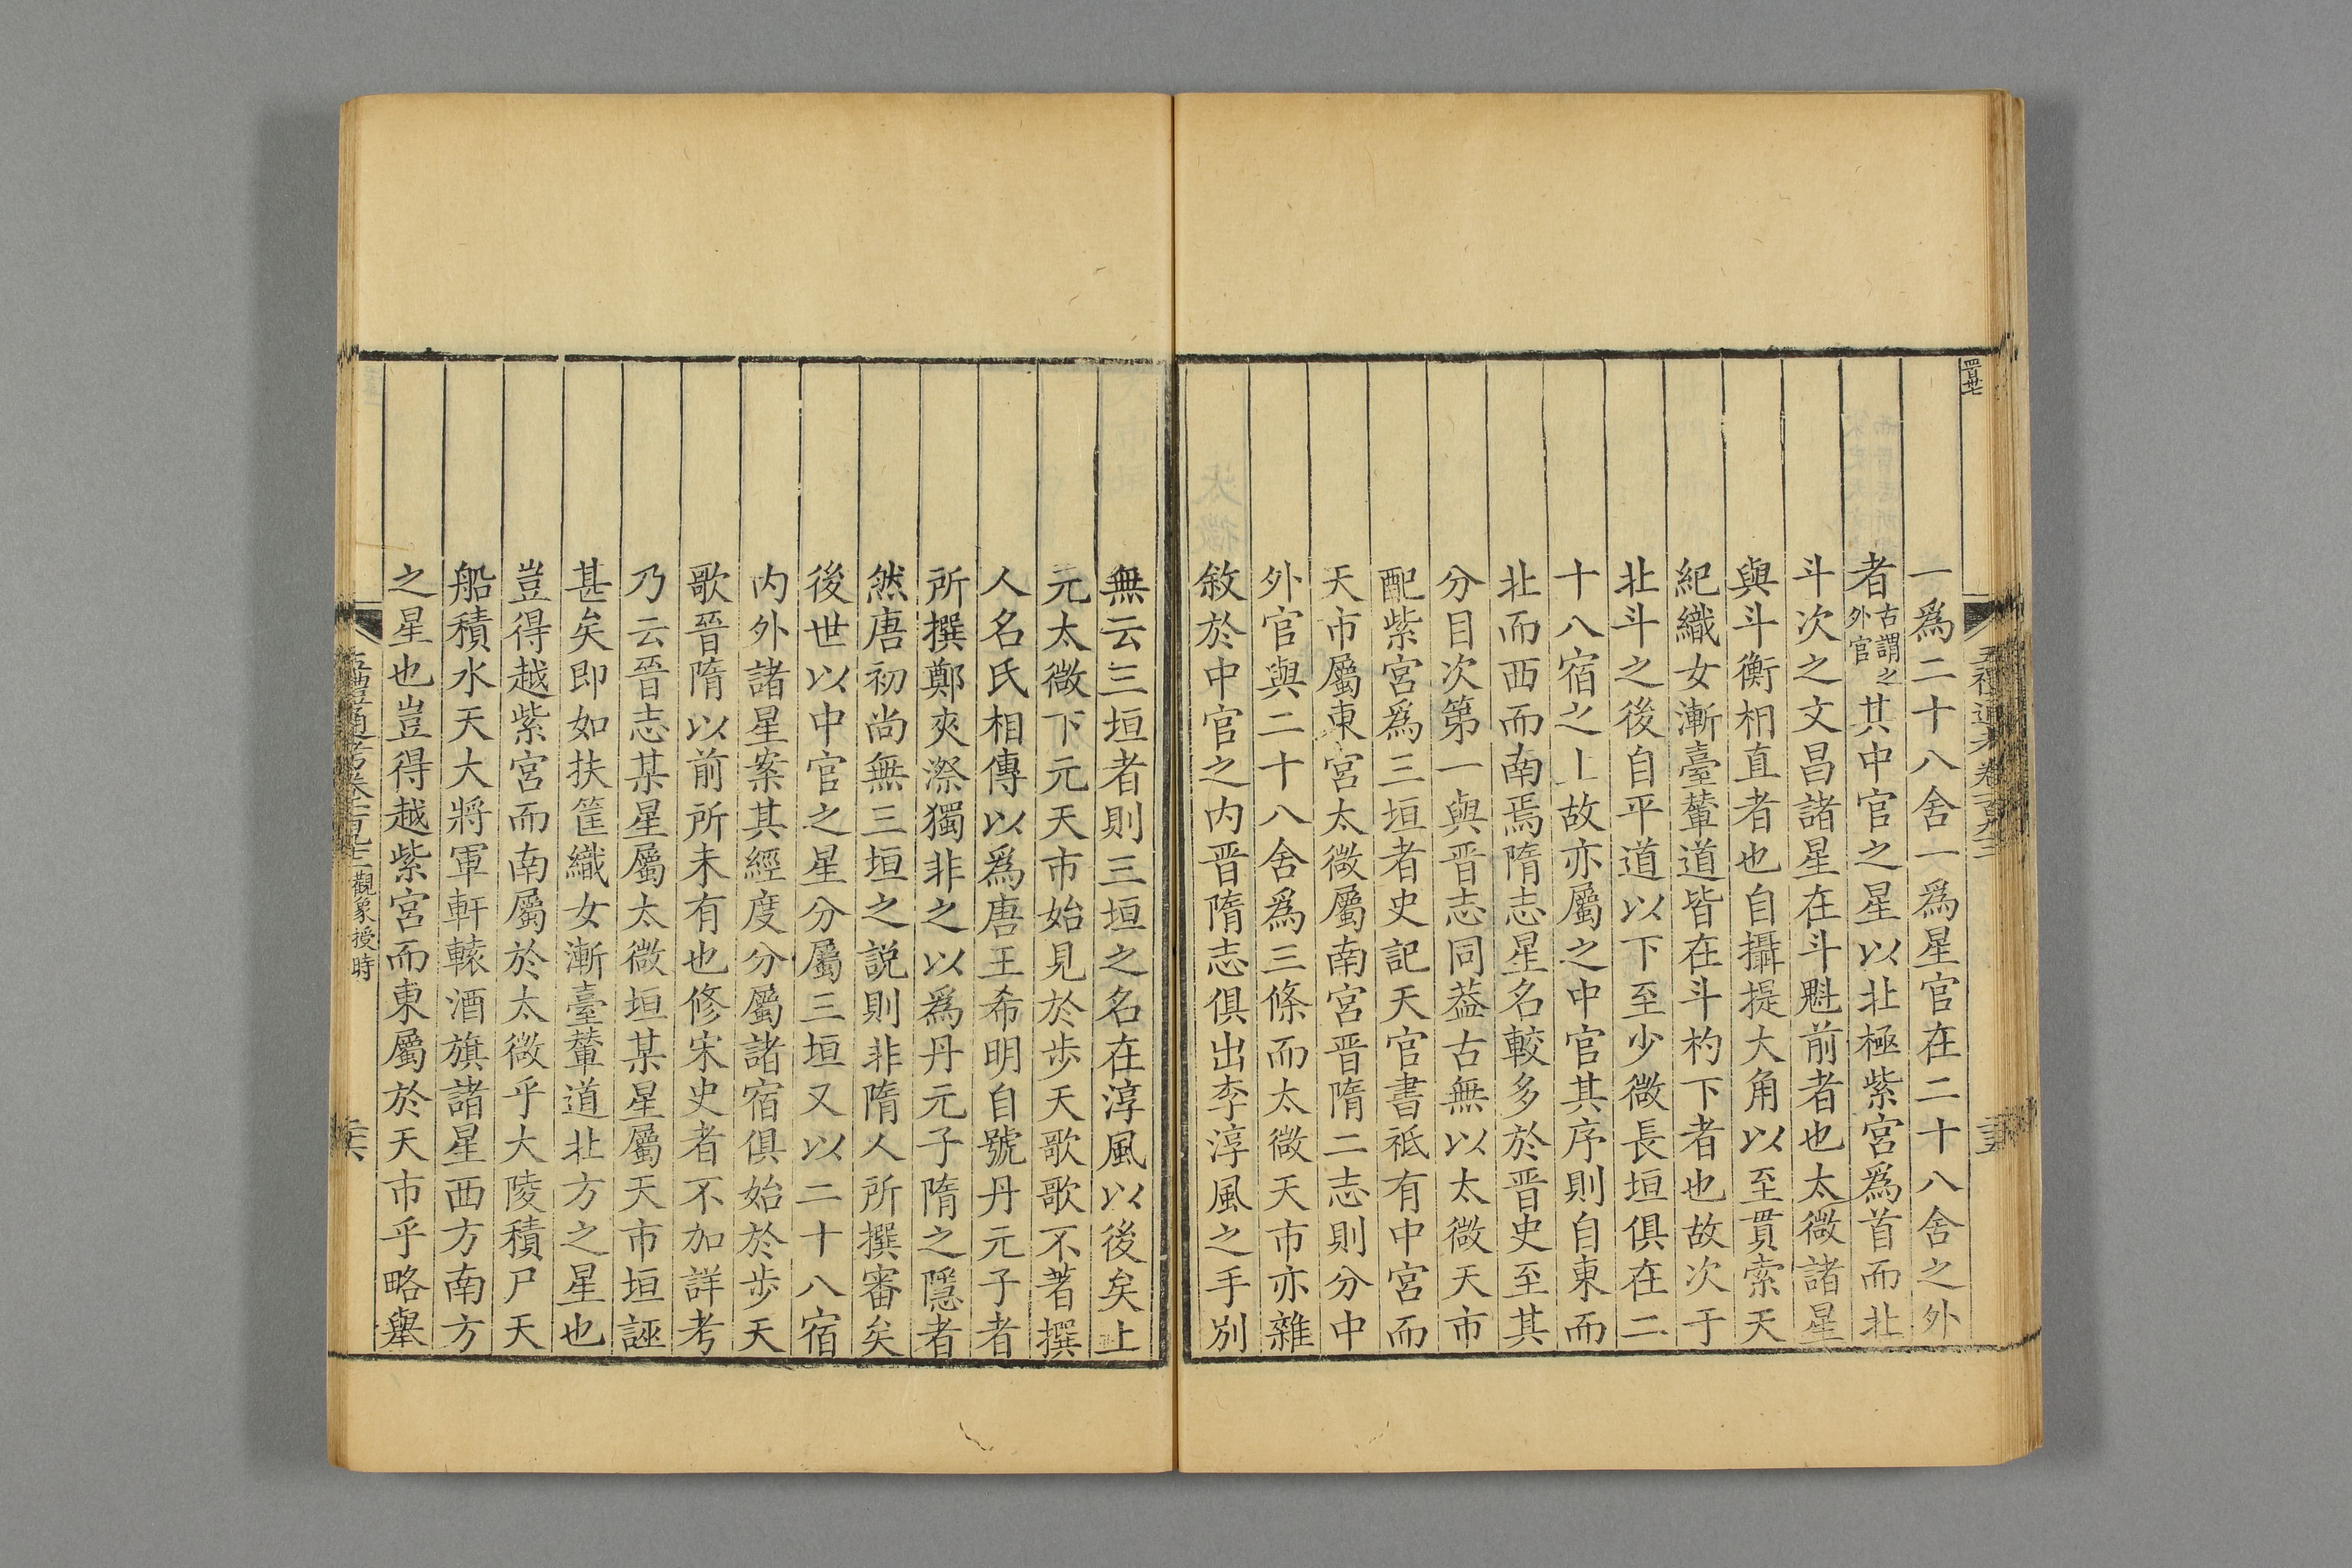 一爲二十八舍一爲星官在二十八舍之外
者古謂之外官其中官之星以北極紫宮爲首而北
斗次之文昌諸星在斗魁前者也太微諸星
與斗衡相直者也自攝提大角以至貫索天
紀織女漸臺輦道皆在斗杓下者也故次于
北斗之後自平道以下至少微長垣俱在二
十八宿之上故亦屬之中官其序則自東而
北而西而南焉隋志星名較多於晋史至其
分目次第一與晋志同葢古無以太微天市
配紫宮爲三垣者史記天官書祗有中宮而
天市屬東宮太微屬南宮晋隋二志則分中
外官與二十八舍爲三條而太微天市亦雜
敘於中官之内晋隋志俱出李淳風之手別
無云三垣者則三垣之名在淳風以後矣上
元太微下元天市始見於步天歌歌不著撰
人名氏相傳以爲唐王希明自號丹元子者
所撰鄭夾漈獨非之以爲丹元子隋之隱者
然唐初尚無三垣之説則非隋人所撰審矣
後世以中官之星分屬三垣又以二十八宿
内外諸星案其經度分屬諸宿俱始於步天
歌晉隋以前所未有也修宋史者不加詳考
乃云晉志某星屬太微垣某星屬天市垣誣
甚矣即如扶筐織女漸臺輦道北方之星也
豈得越紫宮而南屬於太微乎大陵積尸天
船積水天大將軍軒轅酒旗諸星西方南方
之星也豈得越紫宮而東屬於天市乎略舉
觀象授時